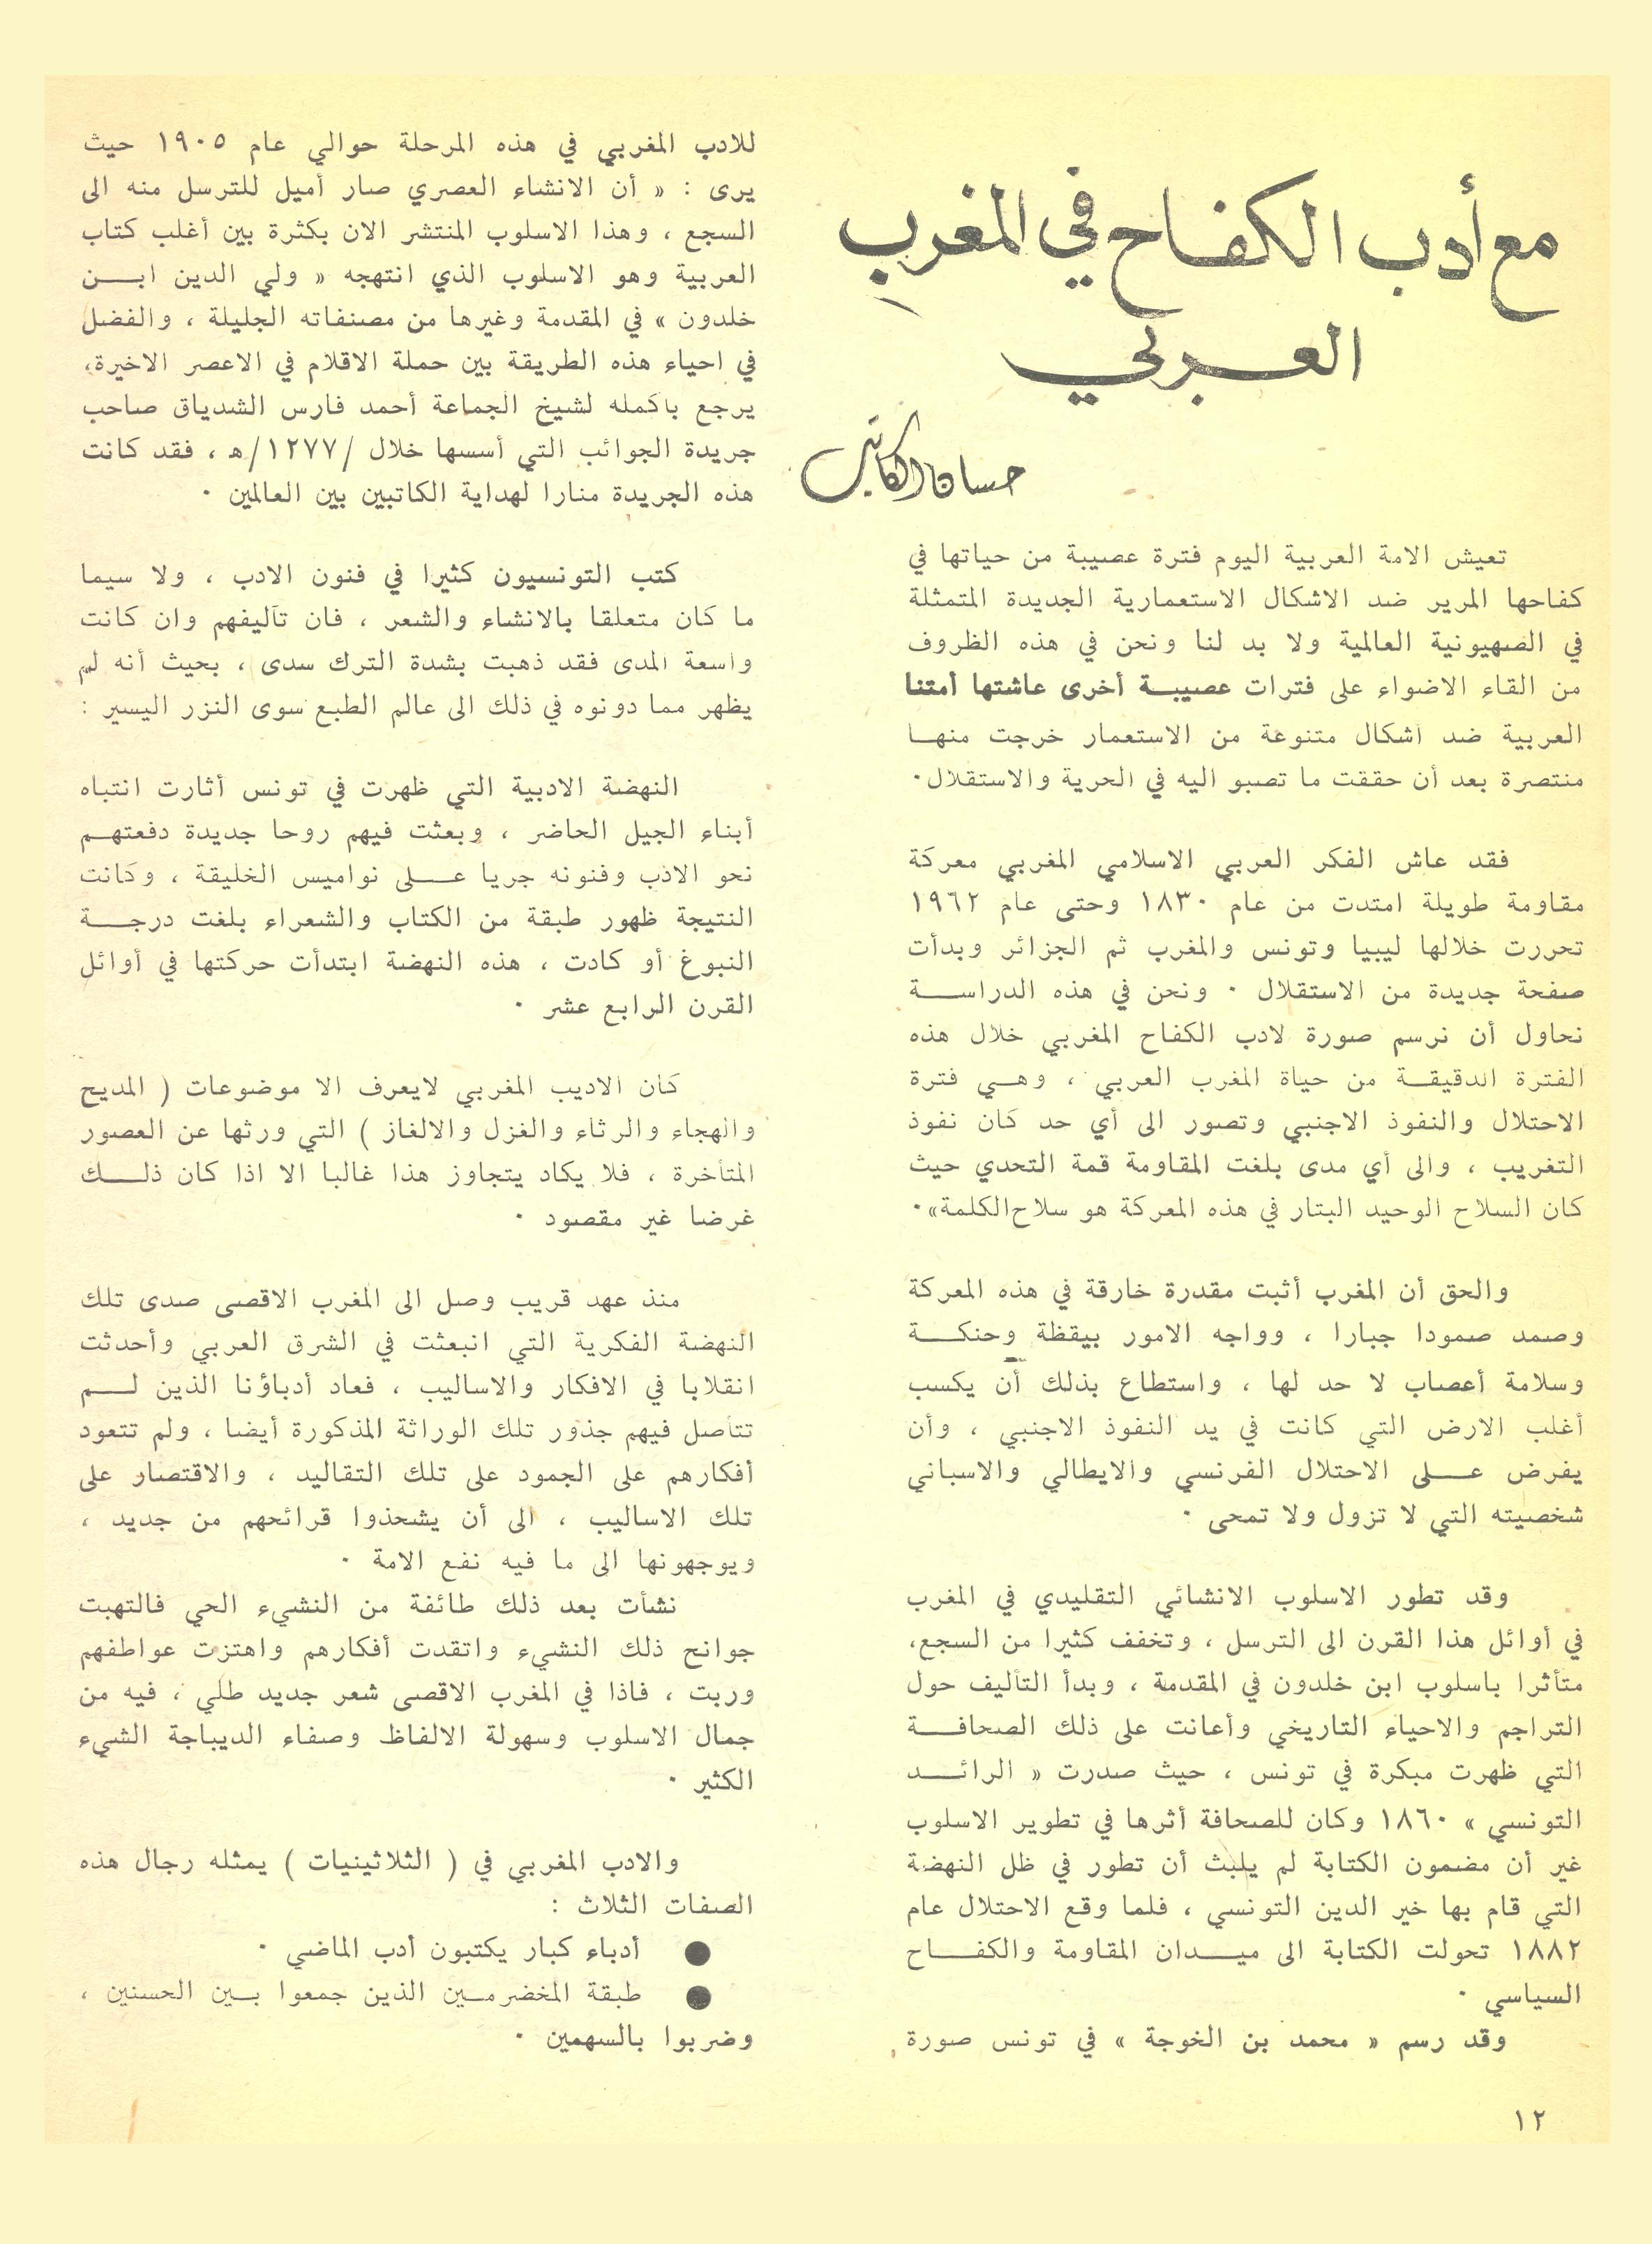 مع أدب الكفاح في المغرب
العربي
حسان الكاتب
تعيش الامة العربية اليوم فترة عصيبة من حياتها في
كفاحها المرير ضد الاشكال الاستعمارية الجديدة المتمثلة
في الصهيونية العالمية ولا بد لنا ونحن في هذه الظروف
من القاء الاضواء على فترات عصيبــة أخرى عاشتها أمتنا
العربية ضد أشكال متنوعة من الاستعمار خرجت منهـا
منتصرة بعد أن حققت ما تصبو اليه في الحرية والاستقلال.
فقد عاش الفكر العربي الاسلامي المغربي معركة
مقاومة طويلة امتدت من عام ١٨٣٠ وحتى عام ١٩٦٢
تحررت خلالها ليبيا وتونس والمغرب ثم الجزائر وبدأت
صفحة جديدة من الاستقلال . ونحن في هذه الدراســة
نحاول أن نرسم صورة لادب الكفاح المغربي خلال هذه
الفترة الدقيقـة من حياة المغرب العربي ، وهـي فترة
الاحتلال والنفوذ الاجنبي وتصور الى أي حد كان نفوذ
التغريب ، والى أي مدى بلغت المقاومة قمة التحدي حيث
كان السلاح الوحيد البتار في هذه المعركة هو سلاح الكلمة».
والحق أن المغرب أثبت مقدرة خارقة في هذه المعركة
وصمد صمودا جبارا ، وواجه الامور بيقظة وحنكــة
وسلامة أعصاب لا حد لها ، واستطاع بذلك أن يكسب
أغلب الارض التي كانت في يد النفوذ الاجنبي ، وأن
يفرض عــلى الاحتلال الفرنسي والايطالي والاسباني
شخصيته التي لا تزول ولا تمحى .
وقد تطور الاسلوب الانشائي التقليدي في المغرب
في أوائل هذا القرن الى الترسل ، وتخفف كثيرا من السجع،
متأثرا باسلوب ابن خلدون في المقدمة ، وبدأ التأليف حول
التراجم والاحياء التاريخي وأعانت على ذلك الصحافــة
التي ظهرت مبكرة في تونس ، حيث صدرت « الرائــد
التونسي » ١٨٦٠ وكان للصحافة أثرها في تطوير الاسلوب
غير أن مضمون الكتابة لم يلبث أن تطور في ظل النهضة
التي قام بها خير الدين التونسي ، فلما وقع الاحتلال عام
١٨٨٢ تحولت الكتابة الى ميــدان المقاومة والكفــاح
السياسي .
وقد رسم « محمد بن الخوجة » في تونس صورة
للادب المغربي في هذه المرحلة حوالي عام ١٩٠٥ حيث
يرى : « أن الانشاء العصري صار أميل للترسل منه الى
السجع ، وهذا الاسلوب المنتشر الان بكثرة بين أغلب كتاب
العربية وهو الاسلوب الذي انتهجه « ولي الدين ابــن
خلدون » في المقدمة وغيرها من مصنفاته الجليلة ، والفضل
في احياء هذه الطريقة بين حملة الاقلام في الاعصر الاخيرة،
يرجع باكمله لشيخ الجماعة أحمد فارس الشدياق صاحب
جريدة الجوائب التي أسسها خلال /١٢٧٧/هـ ، فقد كانت
هذه الجريدة منارا لهداية الكاتبين بين العالمين .
كتب التونسيون كثيرا في فنون الادب ، ولا سيما
ما كان متعلقا بالانشاء والشعر ، فان تآليفهم وان كانت
واسعة المدى فقد ذهبت بشدة الترك سدى ، بحيث أنه لم
يظهر مما دونوه في ذلك الى عالم الطبع سوى النزر اليسير :
النهضة الادبية التي ظهرت في تونس أثارت انتباه
أبناء الجيل الحاضر ، وبعثت فيهم روحا جديدة دفعتهـم
نحو الادب وفنونه جريا عــلى نواميس الخليقة ، وكانت
النتيجة ظهور طبقة من الكتاب والشعراء بلغت درجــة
النبوغ أو كادت ، هذه النهضة ابتدأت حركتها في أوائل
القرن الرابع عشر .
كان الاديب المغربي لايعرف الا موضوعات ( المديح
والهجاء والرثاء والغزل والالغاز ) التي ورثها عن العصور
المتأخرة ، فلا يكاد يتجاوز هذا غالبا الا اذا كان ذلــك
غرضا غير مقصود .
منذ عهد قريب وصل الى المغرب الاقصى صدى تلك
النهضة الفكرية التي انبعثت في الشرق العربي وأحدثت
انقلابا في الافكار والاساليب ، فعاد أدباؤنا الذين لــم
تتأصل فيهم جذور تلك الوراثة المذكورة أيضا ، ولم تتعود
أفكارهم على الجمود على تلك التقاليد ، والاقتصار على
تلك الاساليب ، الى أن يشحذوا قرائحهم من جديد ،
ويوجهونها الى ما فيه نفع الامة .
نشأت بعد ذلك طائفة من النشيء الحي فالتهبت
جوانح ذلك النشيء واتقدت أفكارهم واهتزت عواطفهم
وربت ، فاذا في المغرب الاقصى شعر جديد طلي ، فيه من
جمال الاسلوب وسهولة الالفاظ وصفاء الديباجة الشيء
الكثير .
والادب المغربي في ( الثلاثينيات ) يمثله رجال هذه
الصفات الثلاث :
● أدباء كبار يكتبون أدب الماضي .
● طبقة المخضرمـين الذين جمعوا بـين الحسنين ،
وضربوا بالسهمين .
١٢